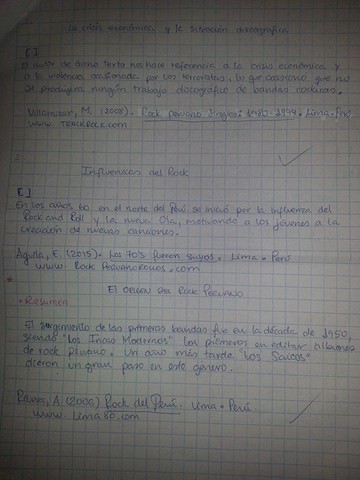 La crisis económica y la situación discográfica
[.]
El autor de dicho texto nos hace referencia a la crisis económica y
a la violencia ocasionada por los terroristas, lo que ocasionó que no
se produjera ningún trabajo discográfico de bandas rockeras.
Villamazar, M. (2008). Rock peruano Singles: 1980-1994. Lima-Perú
www. TRACKROCK.com
Influencias del Rock
[.]
En los años 60 en el norte del Perú se inició por la influencia del
Rock and Roll y la nueva Ola, motivando a los jóvenes a la
creación de nuevas canciones.
Aguila, E. (2015). Los 70's fueron suyos. Lima-Perú
www. Rock
El Origen del Rock Peruano
* Resumen
El surgimiento de las primeras bandas fue en la década de 1950,
siendo "Los Incas Modernos" los primeros en editar álbumes
de rock peruano. Un año más tarde "Los Saicos"
dieron un gran paso en este género.
A. (2006) Rock del Perú. Lima-Perú.
www. Lima50.com